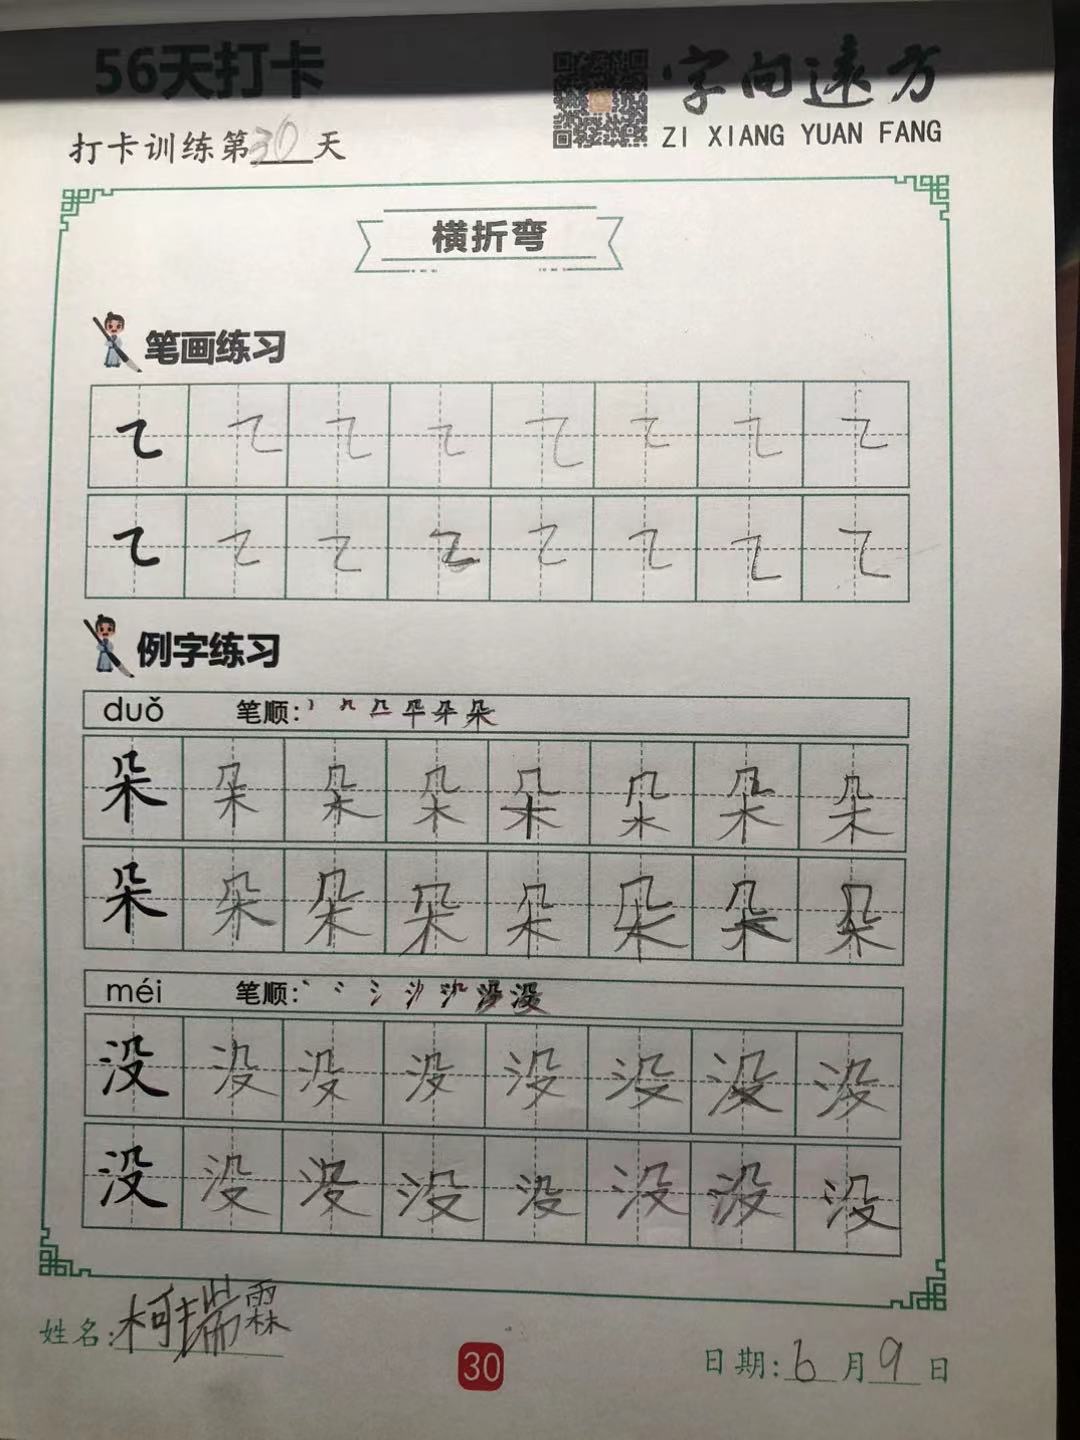 56天打卡
字向遠方
ZI XIANG YUAN FANG
打卡训练第30天
横折弯
笔画练习
㇍ ㇍ ㇍ ㇍ ㇍ ㇍ ㇍ ㇍
㇍ ㇍ ㇍ ㇍ ㇍ ㇍ ㇍ ㇍
例字练习
duǒ 笔顺:
朵 朵 朵 朵 朵 朵 朵 朵
朵 朵 朵 朵 朵 朵 朵 朵
méi 笔顺:
没 没 没 没 没 没 没 没
没 没 没 没 没 没 没 没
姓名:柯瑞霖
30
日期:6月9日